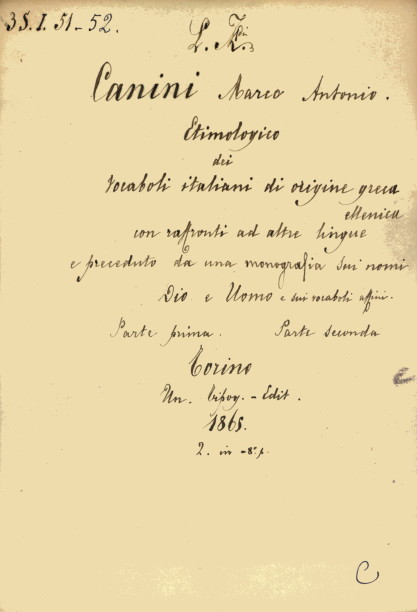 35.I.51-52.
L.
Canini Marco Antonio.
Etimologico
dei
Vocaboli italiani di origine greca
ellenica
con raffronti ad altre lingue
e preceduto da una monografia sui nomi
Dio e Uomo e sui vocaboli affini.
Parte prima. Parte seconda
Torino
Un. Tipog.-Edit.
1865.
2. in -8º p.
C